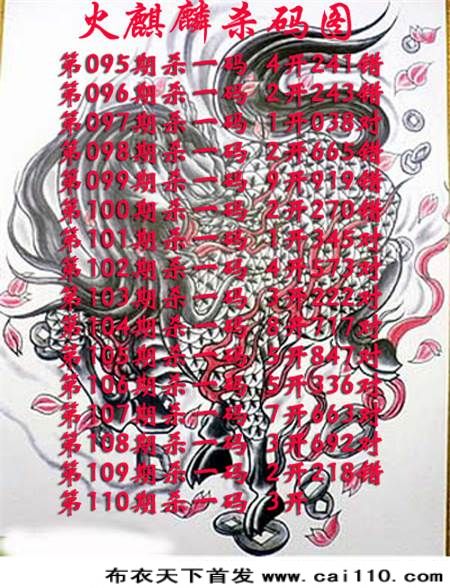 火麒麟杀码图
第095期杀一码 4开241错
第096期杀一码 2开243错
第097期杀一码 1开038对
第098期杀一码 2开665错
第099期杀一码 9开919错
第100期杀一码 2开270错
第101期杀一码 1开345对
第102期杀一码 4开573对
第103期杀一码 3开222对
第104期杀一码 8开717对
第105期杀一码 5开847对
第106期杀一码 5开336对
第107期杀一码 7开663对
第108期杀一码 3开692对
第109期杀一码 2开218错
第110期杀一码 3开
布衣天下首发 www.cai110.com